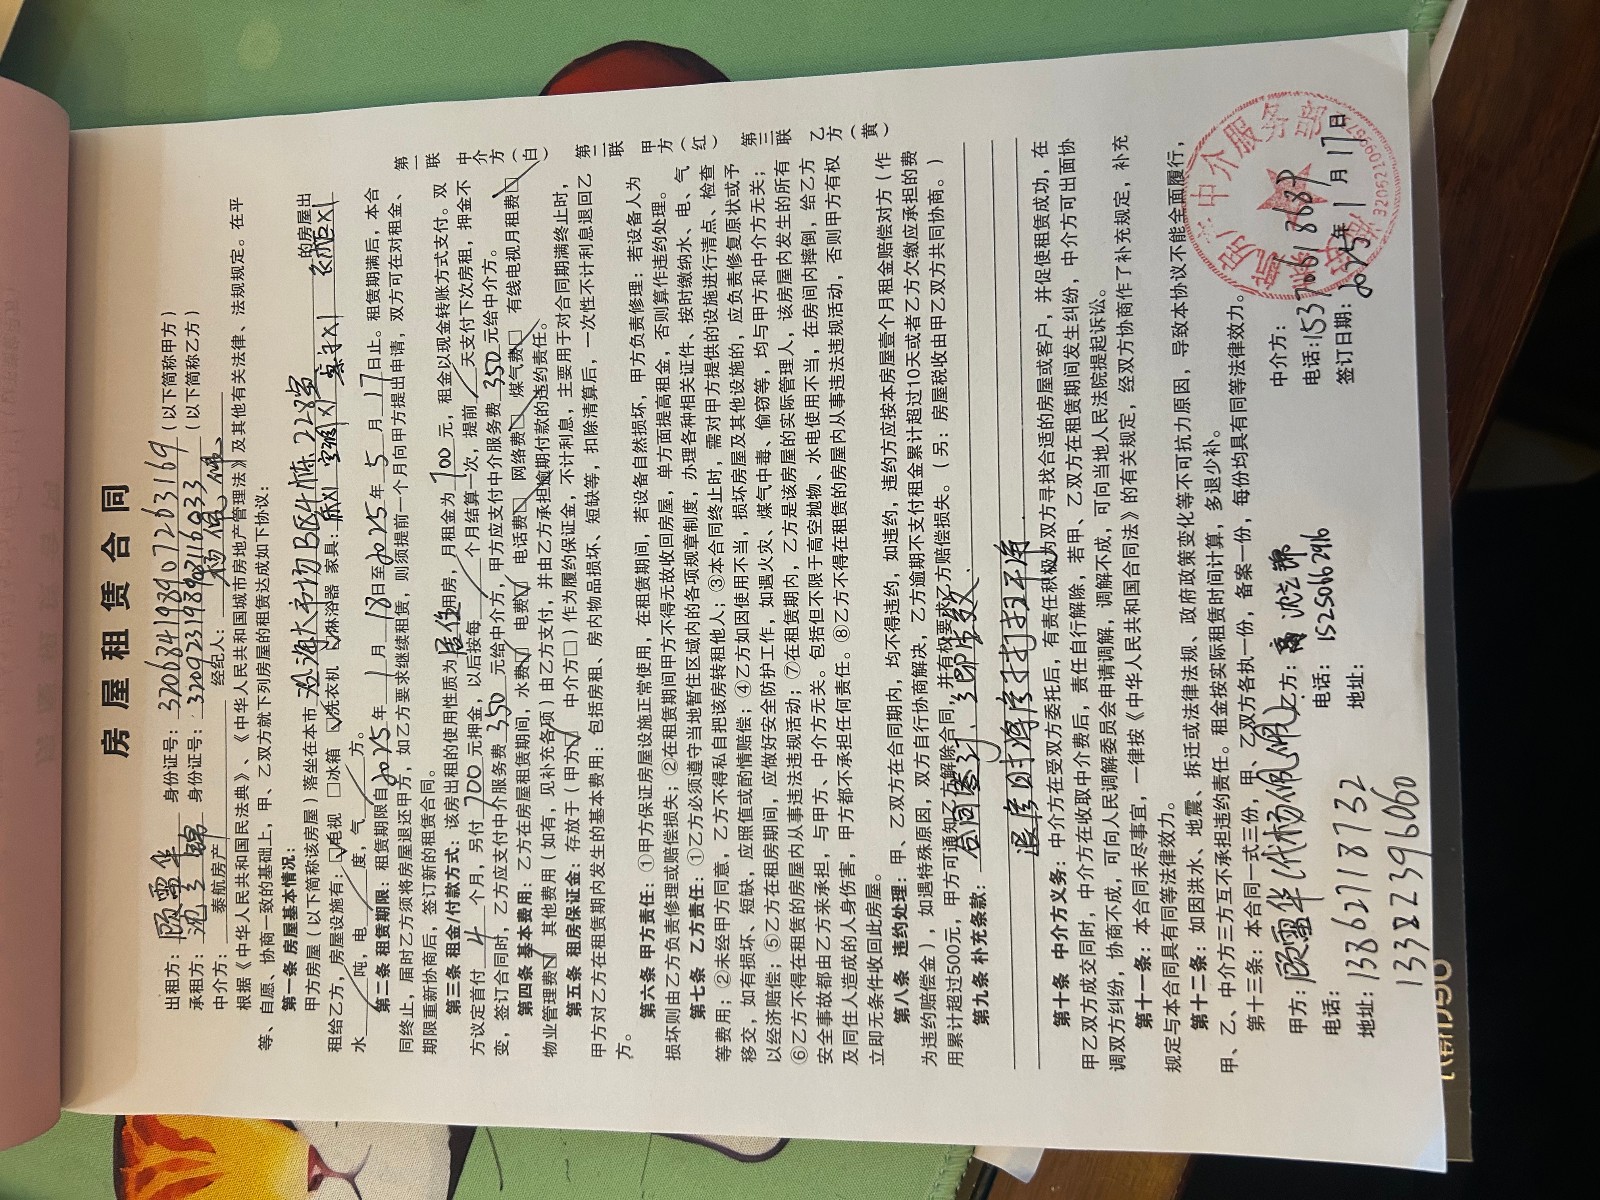 房屋租赁合同
出租方：顾雪华 身份证号：320684198907263169（以下简称甲方）
承租方：沈兰锦 身份证号：320923198921033（以下简称乙方）
中介方：泰航房产 经纪人：杨佩佩
根据《中华人民共和国民法典》、《中华人民共和国城市房地产管理法》及其他有关法律、法规规定。在平
等、自愿、协商一致的基础上，甲、乙双方就下列房屋的租赁达成如下协议：
第一条 房屋基本情况：
甲方房屋（以下简称该房屋）落坐在本市 大市场B区4栋 的房屋出
租给乙方，房屋设施有：☑电视 □冰箱 ☑洗衣机 ☑淋浴器 家具：床×1
水 吨，电 度，气 方。
第二条 租赁期限：租赁期限自2025年1月18日至2025年5月17日止。租赁期满后，本合
同终止，届时乙方须将房屋退还甲方，如乙方要求继续租赁，则须提前一个月向甲方提出申请，双方可在对租金、
期限重新协商后，签订新的租赁合同。
第三条 租金/付款方式：该房出租的使用性质为居住用房，月租金为700元，租金以现金转账方式支付。双
方议定首付4个月，另付700元押金，以后按每 个月结算一次，提前 天支付下次房租，押金不
变，签订合同时，乙方应支付中介服务费350元给中介方，甲方应支付中介服务费350元给中介方。
第四条 基本费用：乙方在房屋租赁期间，水费☑ 电费☑ 电话费□ 网络费□ 煤气费□ 有线电视月租费□
物业管理费☑ 其他费用（如有，见补充各项）由乙方支付，并由乙方承担逾期付款的违约责任。
第五条 租房保证金：存放于（甲方☑ 中介方□）作为履约保证金，不计利息，主要用于对合同期满终止时，
甲方对乙方在租赁期内发生的基本费用：包括房租、房内物品损坏、短缺等，扣除清算后，一次性不计利息退回乙
方。
第六条 甲方责任：①甲方保证房屋设施正常使用，在租赁期间，若设备自然损坏，甲方负责修理：若设备人为
损坏则由乙方负责修理或赔偿损失；②在租赁期间甲方不得无故收回房屋，单方面提高租金，否则算作违约处理。
第七条 乙方责任：①乙方必须遵守当地暂住区域内的各项规章制度，办理各种相关证件、按时缴纳水、电、气
等费用；②未经甲方同意，乙方不得私自把该房转租他人；③本合同终止时，需对甲方提供的设施进行清点、检查
移交，如有损坏、短缺，应照值或酌情赔偿；④乙方如因使用不当，损坏房屋及其他设施的，应负责修复原状或予
以经济赔偿；⑤乙方在租房期间，应做好安全防护工作，如遇火灾、煤气中毒、偷窃等，均与甲方和中介方无关；
⑥乙方不得在租赁的房屋内从事违法违规活动；⑦在租赁期内，乙方是该房屋的实际管理人，该房屋内发生的所有
安全事故都由乙方来承担，与甲方、中介方无关。包括但不限于高空抛物、水电使用不当，在房间内摔倒，给乙方
及同住人造成的人身伤害，甲方都不承担任何责任。⑧乙方不得在租赁的房屋内从事违法违规活动，否则甲方有权
立即无条件收回此房屋。
第八条 违约处理：甲、乙双方在合同期内，均不得违约，如违约，违约方应按本房屋壹个月租金赔偿对方（作
为违约赔偿金），如遇特殊原因，双方自行协商解决，乙方逾期不支付租金累计超过10天或者乙方欠缴应承担的费
用累计超过500元，甲方可通知乙方解除合同，并有权要求乙方赔偿损失。（另：房屋税收由甲乙双方共同协商。）
第九条 补充条款：合同签订，立即生效、
退房时将房打扫干净
第十条 中介方义务：中介方在受双方委托后，有责任积极为双方寻找合适的房屋或客户，并促使租赁成功，在
甲乙双方成交同时，中介方在收取中介费后，责任自行解除，若甲、乙双方在租赁期间发生纠纷，中介方可出面协
调双方纠纷，协商不成，可向人民调解委员会申请调解，调解不成，可向当地人民法院提起诉讼。
第十一条：本合同未尽事宜，一律按《中华人民共和国合同法》的有关规定，经双方协商作了补充规定，补充
规定与本合同具有同等法律效力。
第十二条：如因洪水、地震、拆迁或法律法规、政府政策变化等不可抗力原因，导致本协议不能全面履行，
甲、乙、中介方三方互不承担违约责任。租金按实际租赁时间计算，多退少补。
第十三条：本合同一式三份，甲、乙双方各执一份，备案一份，每份均具有同等法律效力。
甲方：顾雪华（代杨佩佩） 乙方：沈兰锦 中介方：
电话： 电话：15250662916 电话：15370613687
地址：13862718732 地址： 签订日期：2025年1月17日
13382396060
第一联 中介方（白） 第二联 甲方（红） 第三联 乙方（黄）
中介服务部